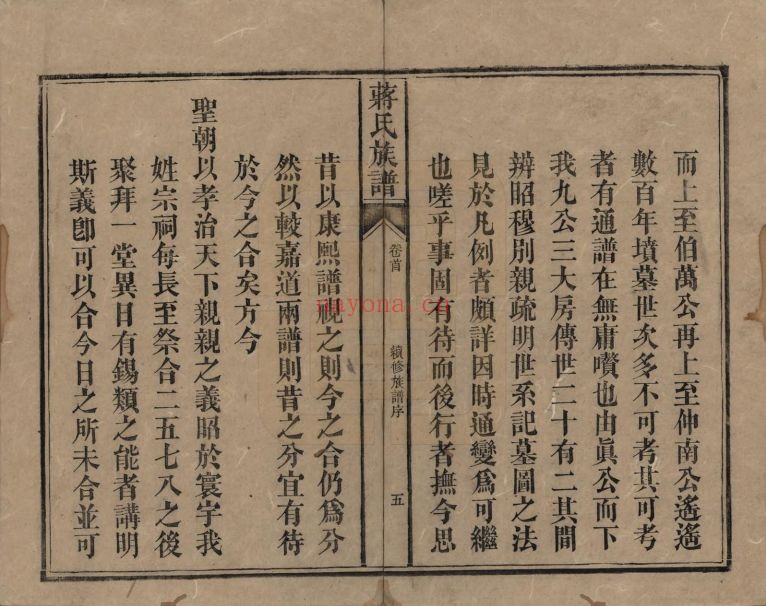 而上至伯萬公再上至仲南公遙遙
數百年墳墓世次多不可考其可考
者有通譜在無庸囋也由眞公而下
我九公三大房傳世二十有二其間
辨昭穆別親疏明世系記墓圖之法
見於凡例者頗詳因時通變爲可繼
也嗟乎事固有待而後行者撫今思
蔣氏族譜
卷首
續修族譜序
五
昔以康熙譜視之則今之合仍爲分
然以較嘉道兩譜則昔之分宜有待
於今之合矣方今
聖朝以孝治天下親親之義昭於寰宇我
姓宗祠每長至祭合二五七八之後
聚拜一堂異日有錫類之能者講明
斯義卽可以合今日之所未合並可